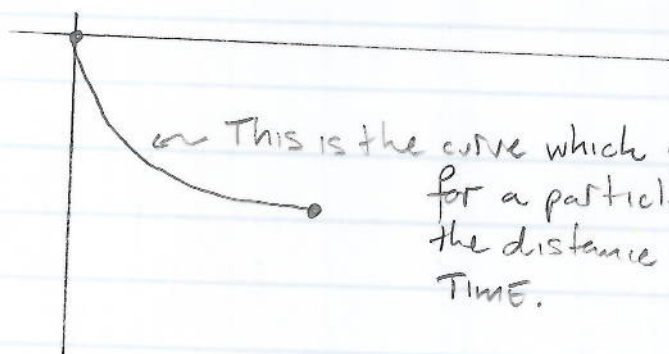 This is the curve which
for a particl
the distance
TIME.